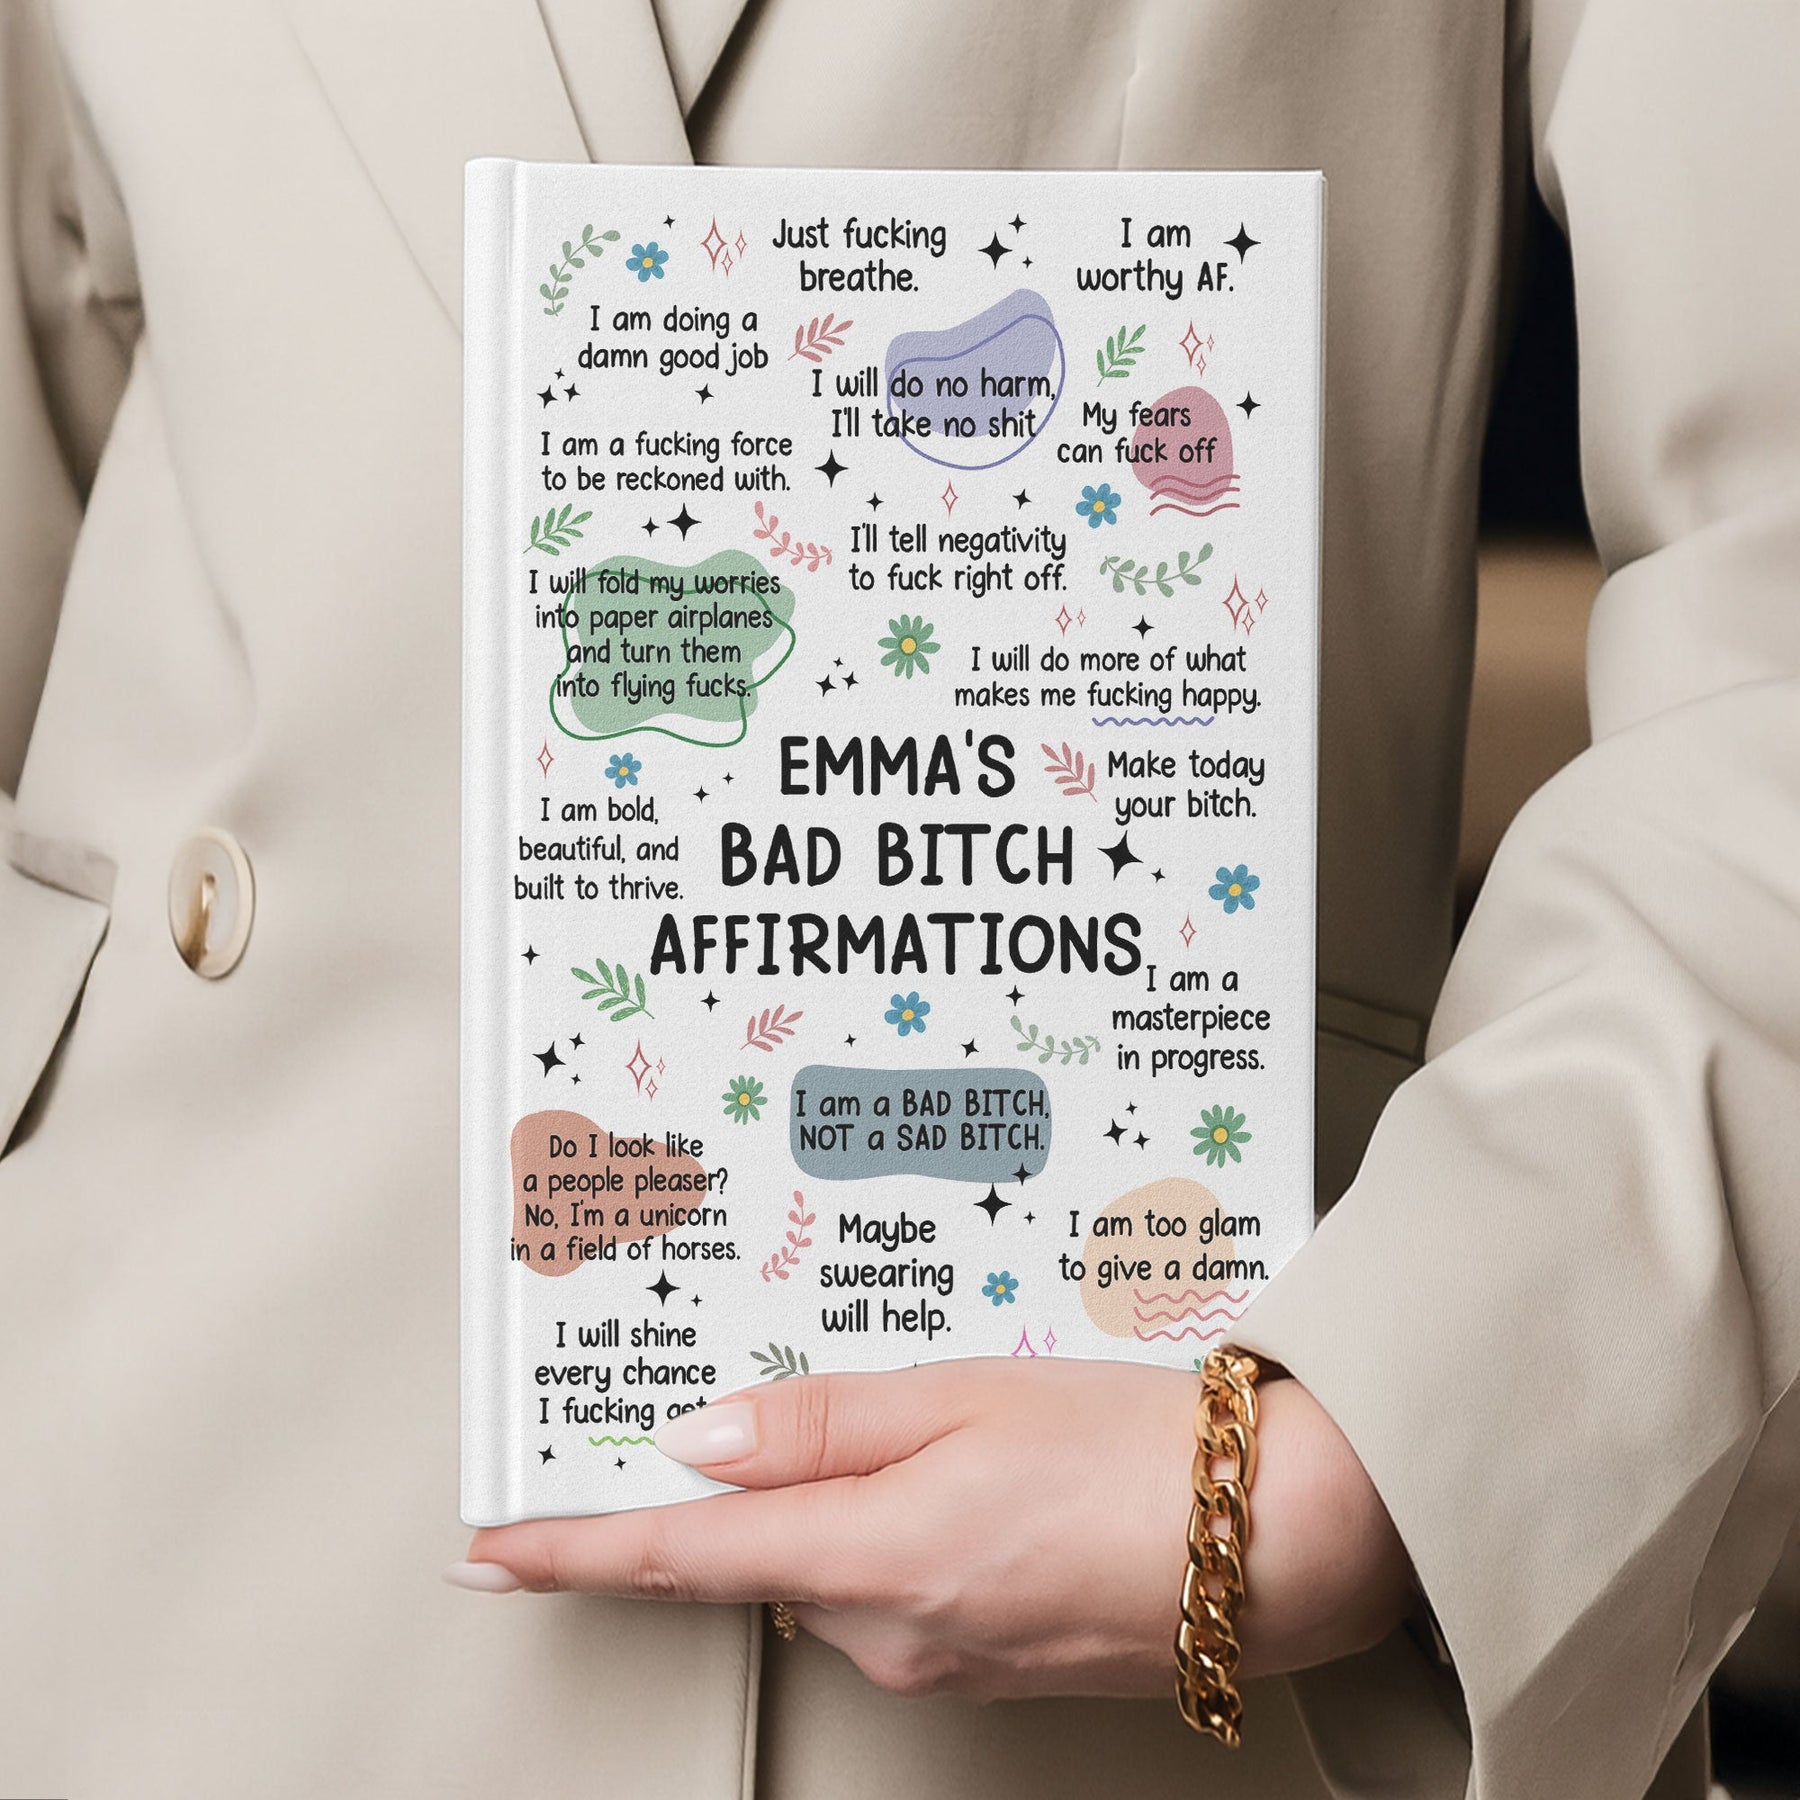 Just fucking
breathe.
I am
worthy AF.
I am doing a
damn good job
I will do no harm,
I'll take no shit
My fears
can fuck off
I am a fucking force
to be reckoned with.
I'll tell negativity
to fuck right off.
I will fold my worries
into paper airplanes
and turn them
into flying fucks.
I will do more of what
makes me fucking happy.
EMMA'S
BAD BITCH
AFFIRMATIONS
Make today
your bitch.
I am bold,
beautiful, and
built to thrive.
I am a
masterpiece
in progress.
I am a BAD BITCH,
NOT a SAD BITCH.
Do I look like
a people pleaser?
No, I'm a unicorn
in a field of horses.
Maybe
swearing
will help.
I am too glam
to give a damn.
I will shine
every chance
I fucking get